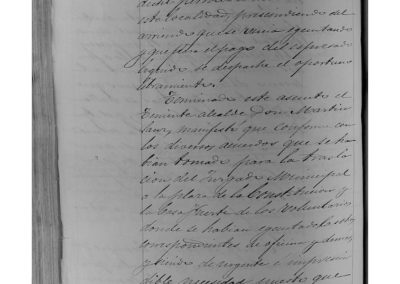 esta localidad, prescindiendo del
arriendo que se venia ejecutando
y que para el pago del expresado
líquido se despache el oportuno
libramiento.
Terminado este asunto el
Teniente alcalde Don Martin
manifestó que conforme con
los diversos acuerdos que se ha-
bian tomado para la trasla-
cion del Juzgado Municipal
a la plaza de la Constitucion y
la Casa Fuerte de los voluntarios
donde se habian ejecutado las obras
correspondientes de oficina y demas,
y siendo de urgente e imprescin-
dible necesidad puesto que